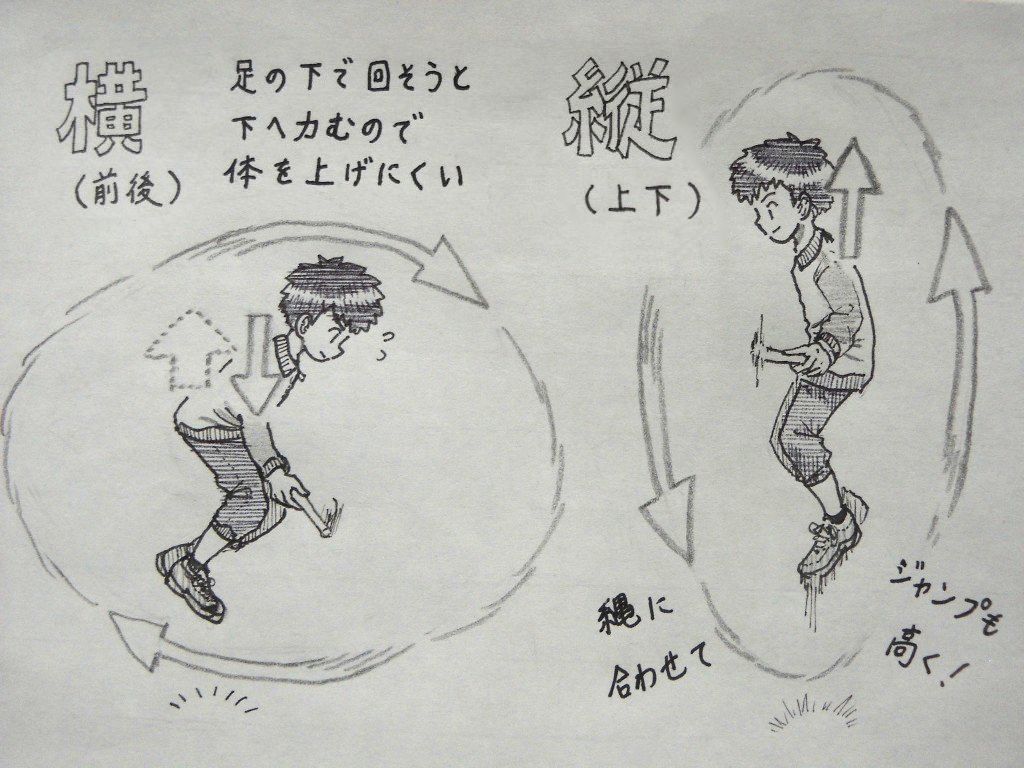 横
(前後)
足の下で回そうと
下へ力むので
体を上げにくい
縦
(上下)
縄に
合わせて
ジャンプも
高く!